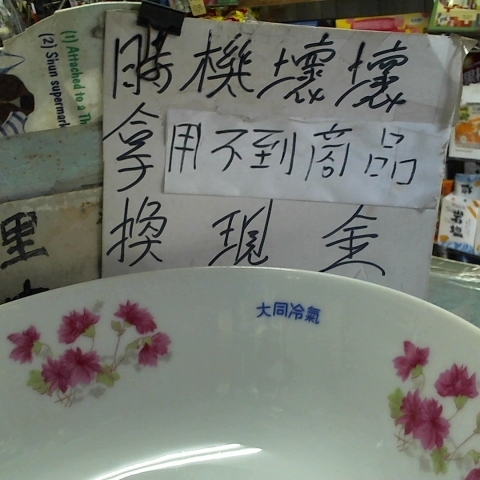 (1) Attached to a
(2) Shun
時機壞壞
拿用不到商品
換現金
里
大同冷氣